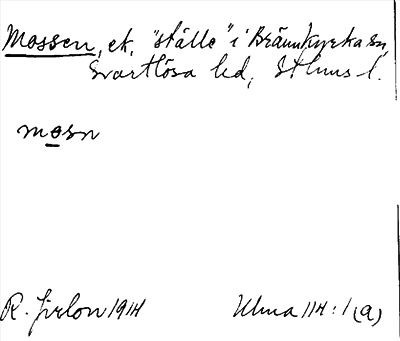 Mossen, ek, "ställe" i Brännkyrka sn,
Svartlösa hd, Sthlms l.
mosn
R. Jirlow 1914
Ulma 114:1 (a)